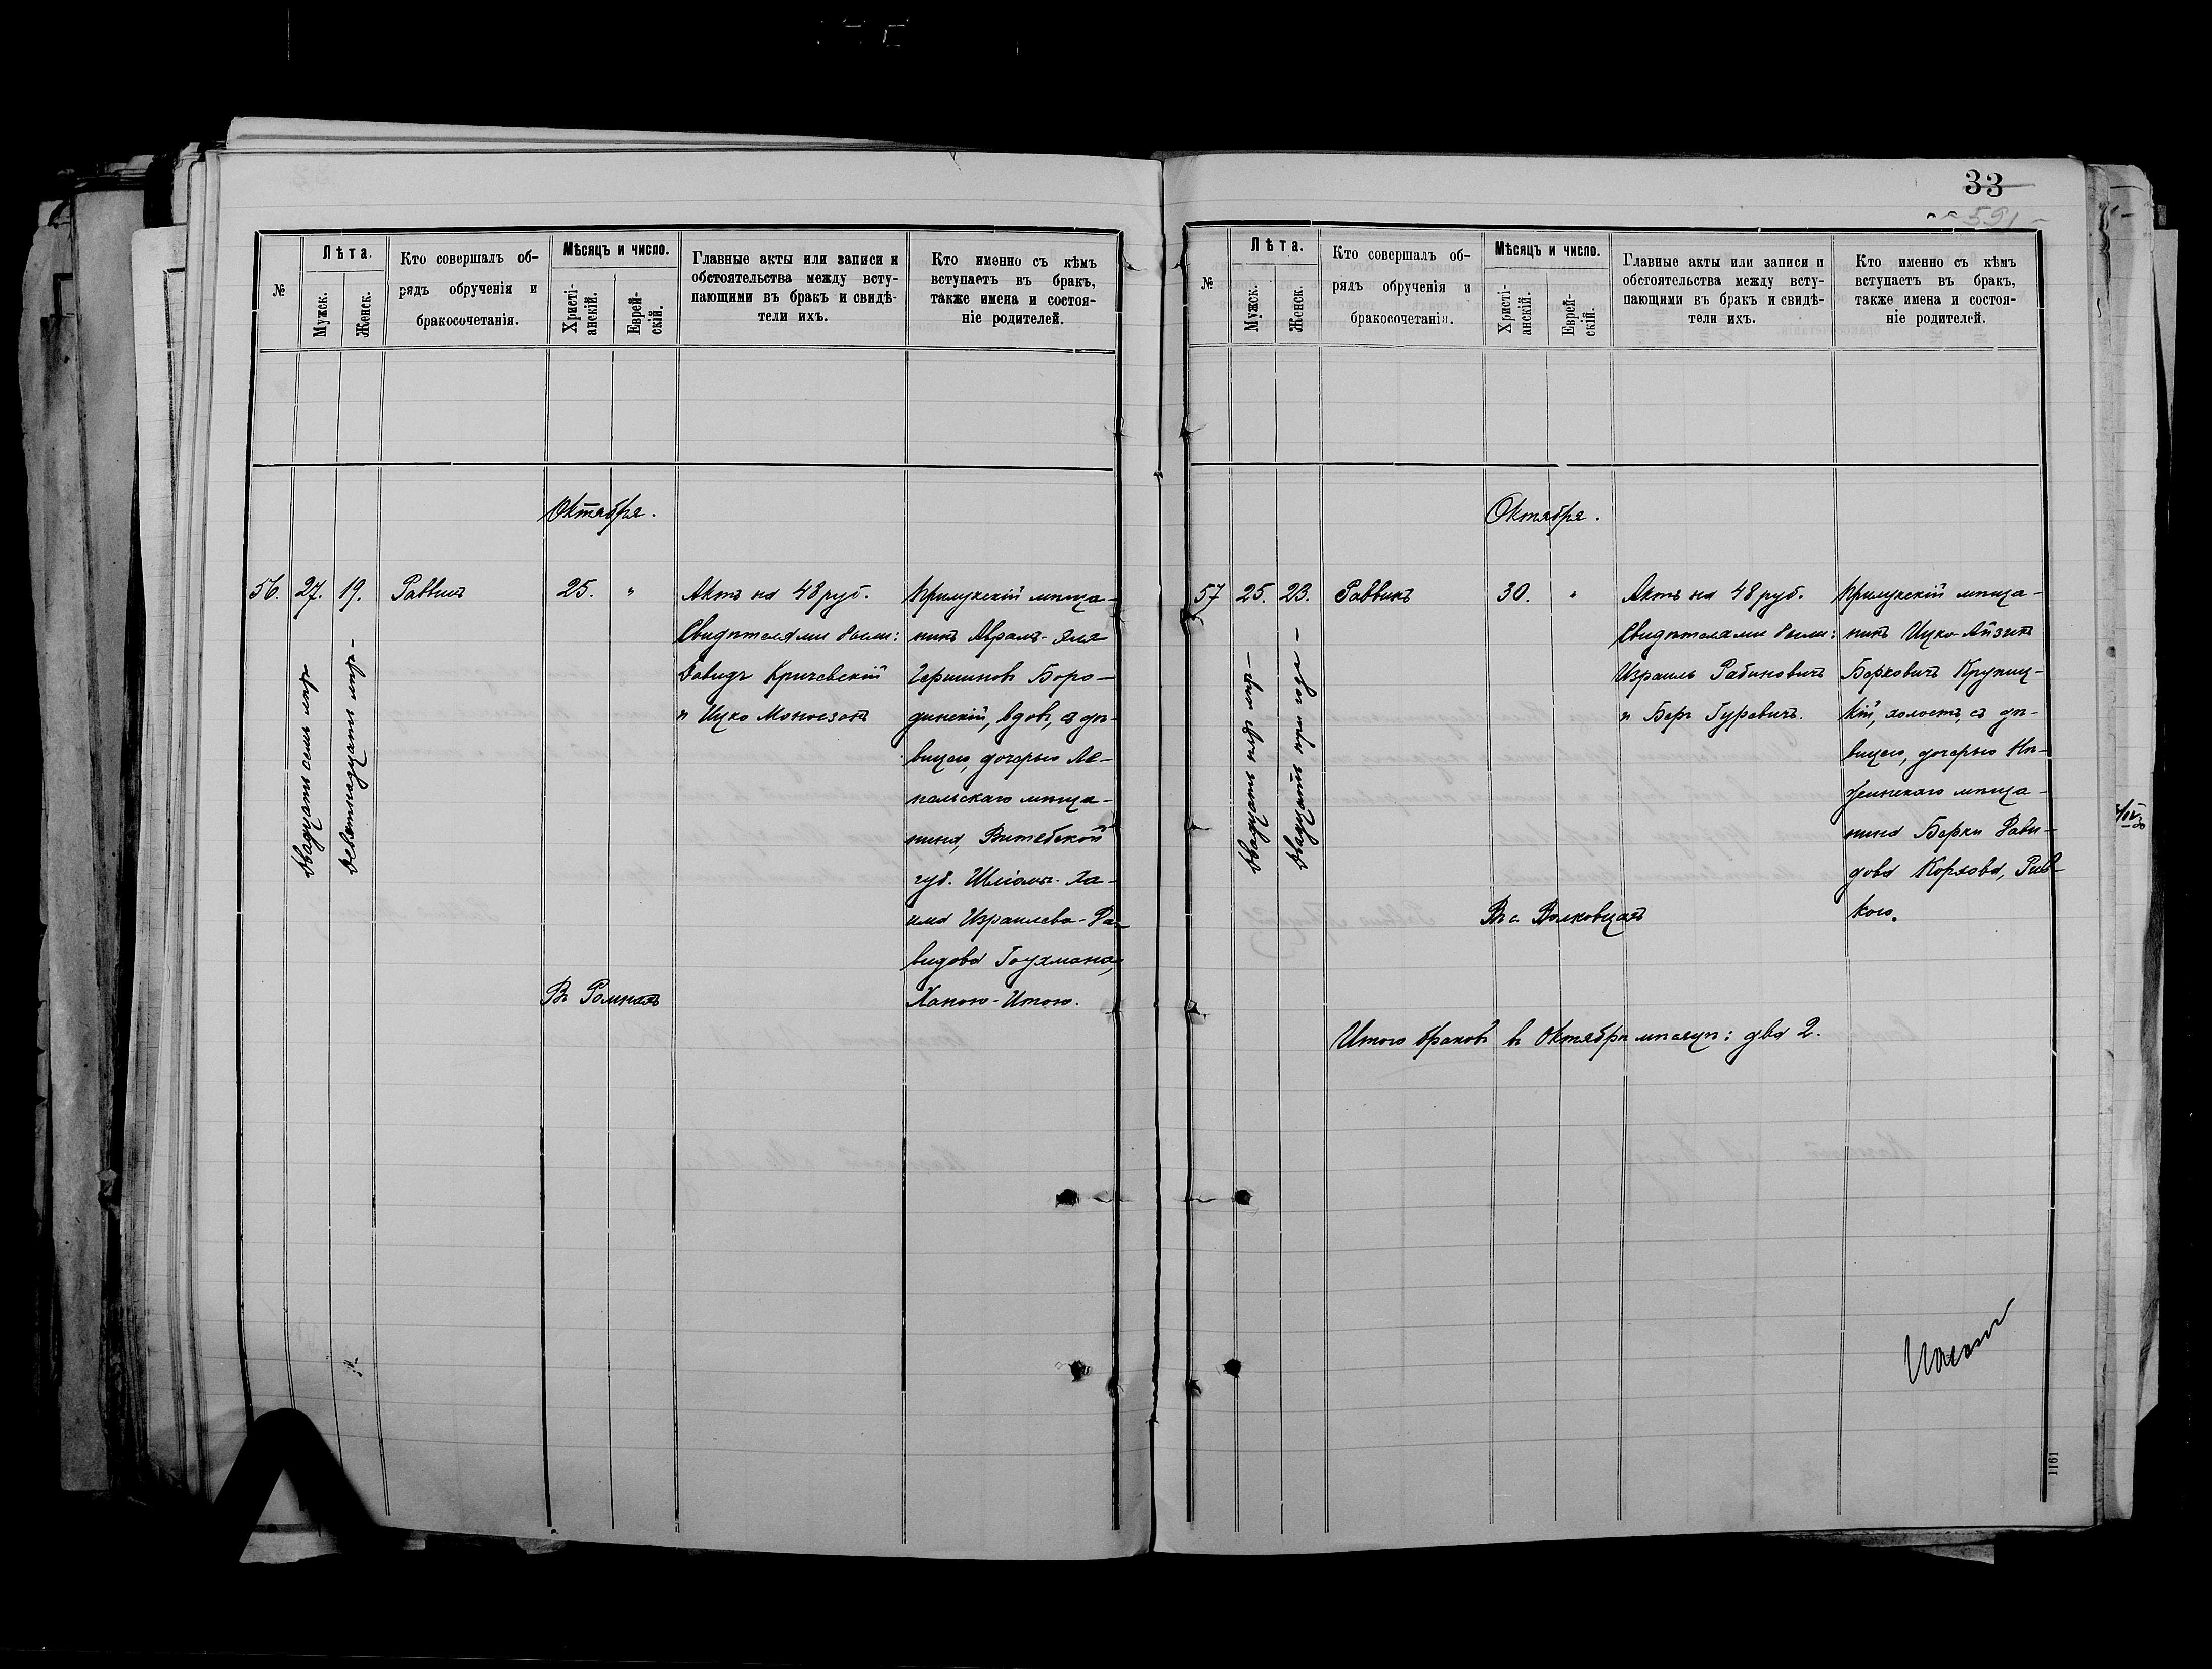 №
Лѣта.
Мужск.
Женск.
Кто совершалъ об-
рядъ обрученія и
бракосочетанія.
Мѣсяцъ и число.
Христі-
анскій.
Еврей-
скій.
Главные акты или записи и
обстоятельства между всту-
пающими въ бракъ и свидѣ-
тели ихъ.
Кто именно съ кѣмъ
вступаетъ въ бракъ,
также имена и состоя-
ніе родителей.
Октября.
56.
27.
Двадцать семь лѣтъ
19.
Девятнадцать лѣтъ -
Раввинъ
25.
"
Въ Ромнахъ
Актъ на 48 руб.
Свидѣтелями были:
Давидъ Кричевскій
и Ицко Моноезонъ
Прилукскій мѣща-
нинъ Абрамъ-Эля
Гершиновъ Боро-
динскій, вдов, съ дѣ-
вицею, дочерью Ле-
пельскаго мѣща-
нина, Витебской
губ. Шліомы-Ха-
има Израилева-Да-
видова Гоухмана,
Ханою-Итою.
33
591
№
Лѣта.
Мужск.
Женск.
Кто совершалъ об-
рядъ обрученія и
бракосочетанія.
Мѣсяцъ и число.
Христі-
анскій.
Еврей-
скій.
Главные акты или записи и
обстоятельства между всту-
пающими въ бракъ и свидѣ-
тели ихъ.
Кто именно съ кѣмъ
вступаетъ въ бракъ,
также имена и состоя-
ніе родителей.
Октября.
57
25.
Двадцать пять лѣтъ -
23.
Двадцать три года -
Раввинъ
30.
"
Въ с. Волковцахъ
Актъ на 48 руб.
Свидѣтелями были:
Израиль Рабиновичъ
и Беръ Гуревичъ.
Прилукскій мѣща-
нинъ Ицко-Айзикъ
Берковичъ Крупиц-
кій, холостъ, съ дѣ-
вицею, дочерью Нѣ-
жинскаго мѣща-
нина Берки Дави-
дова Корхова, Рив-
кою.
Итого браковъ въ Октябрѣ мѣсяцѣ: два 2.
1161